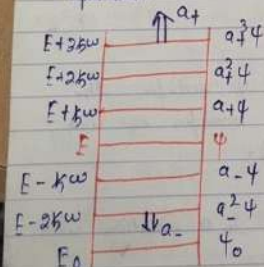 a₊
E+3ħω a₊³ψ
E+2ħω a₊²ψ
E+ħω a₊ψ
E ψ
E-ħω a₋ψ
E-2ħω a₋²ψ
a₋
E₀ ψ₀